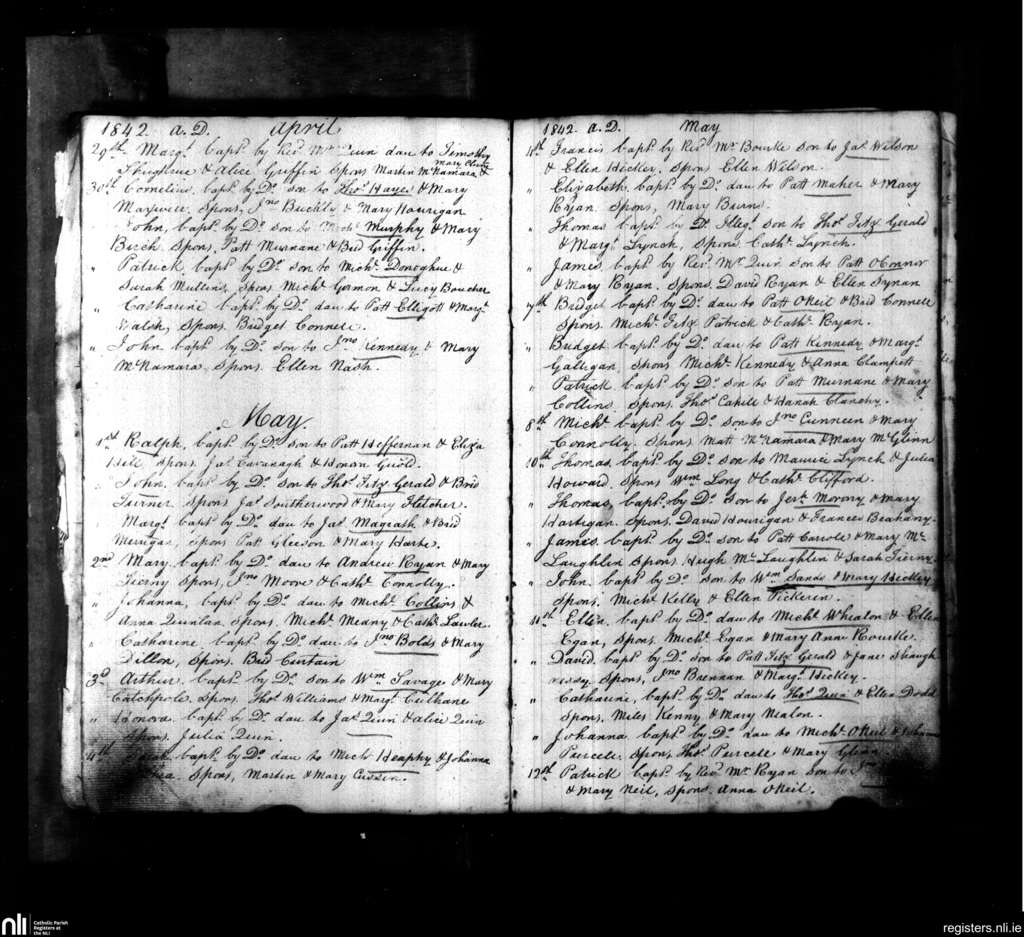 1842. A.D. April
29th Margt. bapt. by Revd. Mr Quin dau to Timothy
& Alice Griffin Spons Martin McNamara & Mary
30th Cornelius, bapt. by Do. son to Thos. Hayes & Mary
Maxwell. Spons, Jno Buckley & Mary Hourigan
John, bapt. by Do. son to Michl. Murphy & Mary
Birch Spons, Patt Murnane & Brid Griffin.
" Patrick bapt. by Do. son to Michl. Donoghue &
Sarah Mullins, Spons Michl. Gorman & Lucy Boucher
" Catharine bapt. by Do. dau to Patt Elligott & Margt.
Walsh, Spons. Bridget Connell.
" John bapt. by Do. son to Jno Kennedy & Mary
McNamara Spons. Ellen Nash.
May.
1st Ralph, bapt. by Do. son to Patt Heffernan & Eliza
Hill, Spons. Jas. Cavanagh & Honora
" John, bapt. by Do. son to Thos. Fitz Gerald & Brid
Turner Spons Jas. Southerwood & Mary Fletcher.
" Margt. bapt. by Do. dau to Jas. Magrath & Brid
Merigan, Spons Patt Gleeson & Mary Harte.
2nd Mary, bapt. by Do. dau to Andrew Ryan & Mary
Tierny Spons, Jno Moore & Cathe. Connolly.
" Johanna, bapt. by Do. dau to Michl. Collins &
Anna Quinlan Spons. Michl. Meany & Cathe. Lawler.
" Catharine bapt. by Do. dau to Jno Bolds & Mary
Dillon, Spons. Brid Curtain
3d Arthur, bapt. by Do. son to Wm Savage & Mary
Catchpole Spons. Thos. Williams & Margt. Culhane
" Honora bapt. by Do. dau to Jas. Quin & Alice Quin
Spons. Julia Quin.
4th Sarah bapt. by Do. dau to Michl. Heaphy & Johanna
Spons, Martin & Mary Cussen.
1842. A.D. May
4th Francis bapt. by Revd. Mr Bourke son to Jas. Wilson
& Ellen Hickley, Spons Ellen Wilson.
" Elizabeth bapt. by Do. dau to Patt Maher & Mary
Ryan Spons, Mary Burns.
" Thomas bapt. by Do. Illegt. son to Thos. Fitz Gerald
& Margt. Lynch, Spons Cathe. Lynch.
" James, bapt by Revd. Mr Quin son to Patt OConnor
& Mary Ryan, Spons. David Ryan & Ellen Synan
7th Bridget bapt. by Do. dau to Patt ONeil & Brid Connell
Spons. Michl. Fitz Patrick & Cathe. Ryan.
" Bridget bapt. by Do. dau to Patt Kennedy & Margt.
Galligan, Spons Michl. Kennedy & Anna Clampett
" Patrick bapt. by Do. son to Patt Murnane & Mary
Collins Spons. Thos. Cahill & Hanah Clanchy.
8th Michl. bapt. by Do. son to Jno Cunneen & Mary
Connolly. Spons Matt McNamara & Mary McGlinn
10th Thomas, bapt. by Do. son to Maurice Lynch & Julia
Howard Spons Wm Long & Cathe. Clifford.
" Thomas, bapt. by Do. son to Jery. Morony & Mary
Hartigan Spons. David Hourigan & Frances Beahany.
" James bapt. by Do. son to Patt Carroll & Mary Mc
Laughlin Spons, Hugh McLaughlin & Sarah Tierny
" John, bapt. by Do. son to Wm Sands & Mary Hickley
Spons, Michl. Kelly & Ellen Pickeren.
11th Ellen, bapt. by Do. dau to Michl. Whealon & Ellen
Egan, Spons. Michl. Egan & Mary Anne Rourke
" David, bapt. by Do. son to Patt Fitz Gerald & Jane Shaugh
nessy Spons, Jno Brennan & Margt. Hickley.
" Catharine, bapt. by Do. dau to Thos. Quin & Ellen Dodd
Spons, Miles Kenny & Mary Nealon.
" Johanna bapt. by Do. dau to Michl. ONeil & Johanna
Purcell Spons, Thos. Purcell & Mary Glinn
12th Patrick bapt. by Revd. Mr Ryan son to Jno
& Mary Neil, Spons Anna ONeil.
nli Catholic Parish
Registers at
the NLI
registers.nli.ie